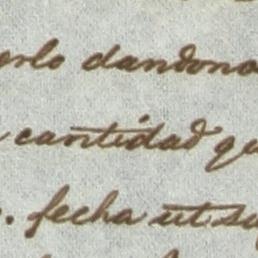 erlo dandono
cantidad qu
fecha ut su